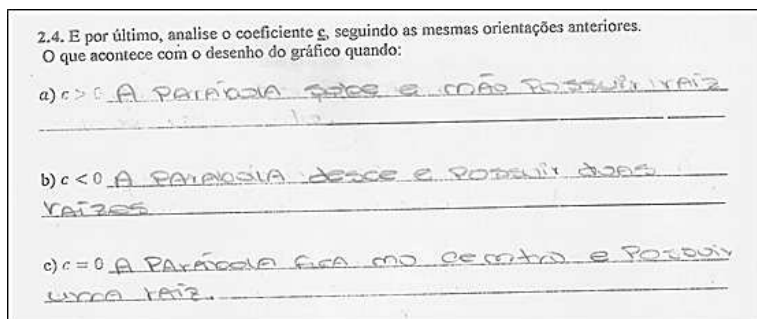 2.4. E por último, analise o coeficiente c, seguindo as mesmas orientações anteriores.
O que acontece com o desenho do gráfico quando:
a) c > 0 A PArÁbolA sobe e não Possuir rAiz
b) c < 0 A PArAbolA desce e Possuir duAs
rAízes
c) c = 0 A PArÁbolA ficA no centro e Possuir
uma rAiz.